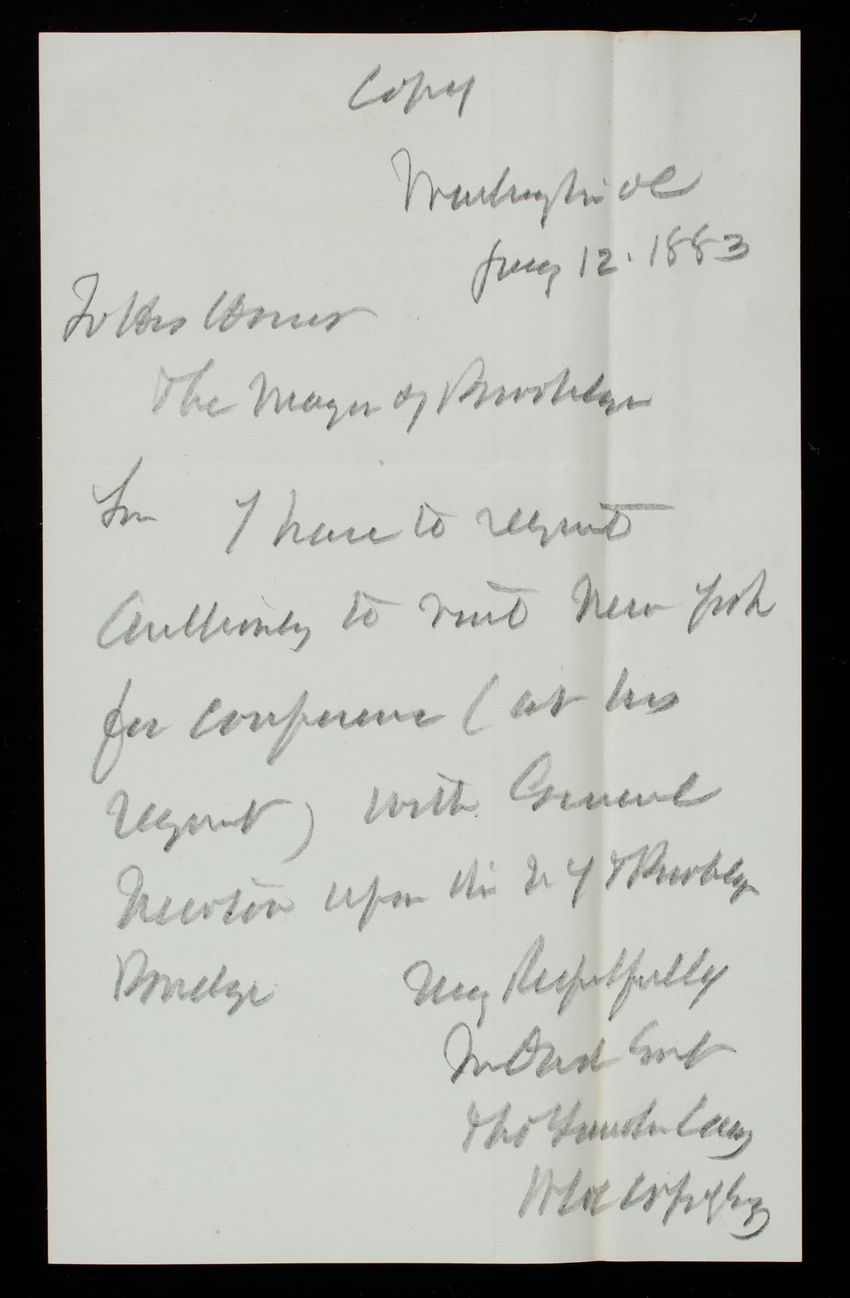 Copy
Washington DC
Jany 12. 1883
To His Honor
The Mayor of Brooklyn
Sir I have to request
Authority to visit New York
for conference (at his
request) with General
Newton upon the N Y & Brooklyn
Bridge Very Respectfully
Yr Obed Servt
Thos Lincoln Casey
Lt Col Corps of Engs